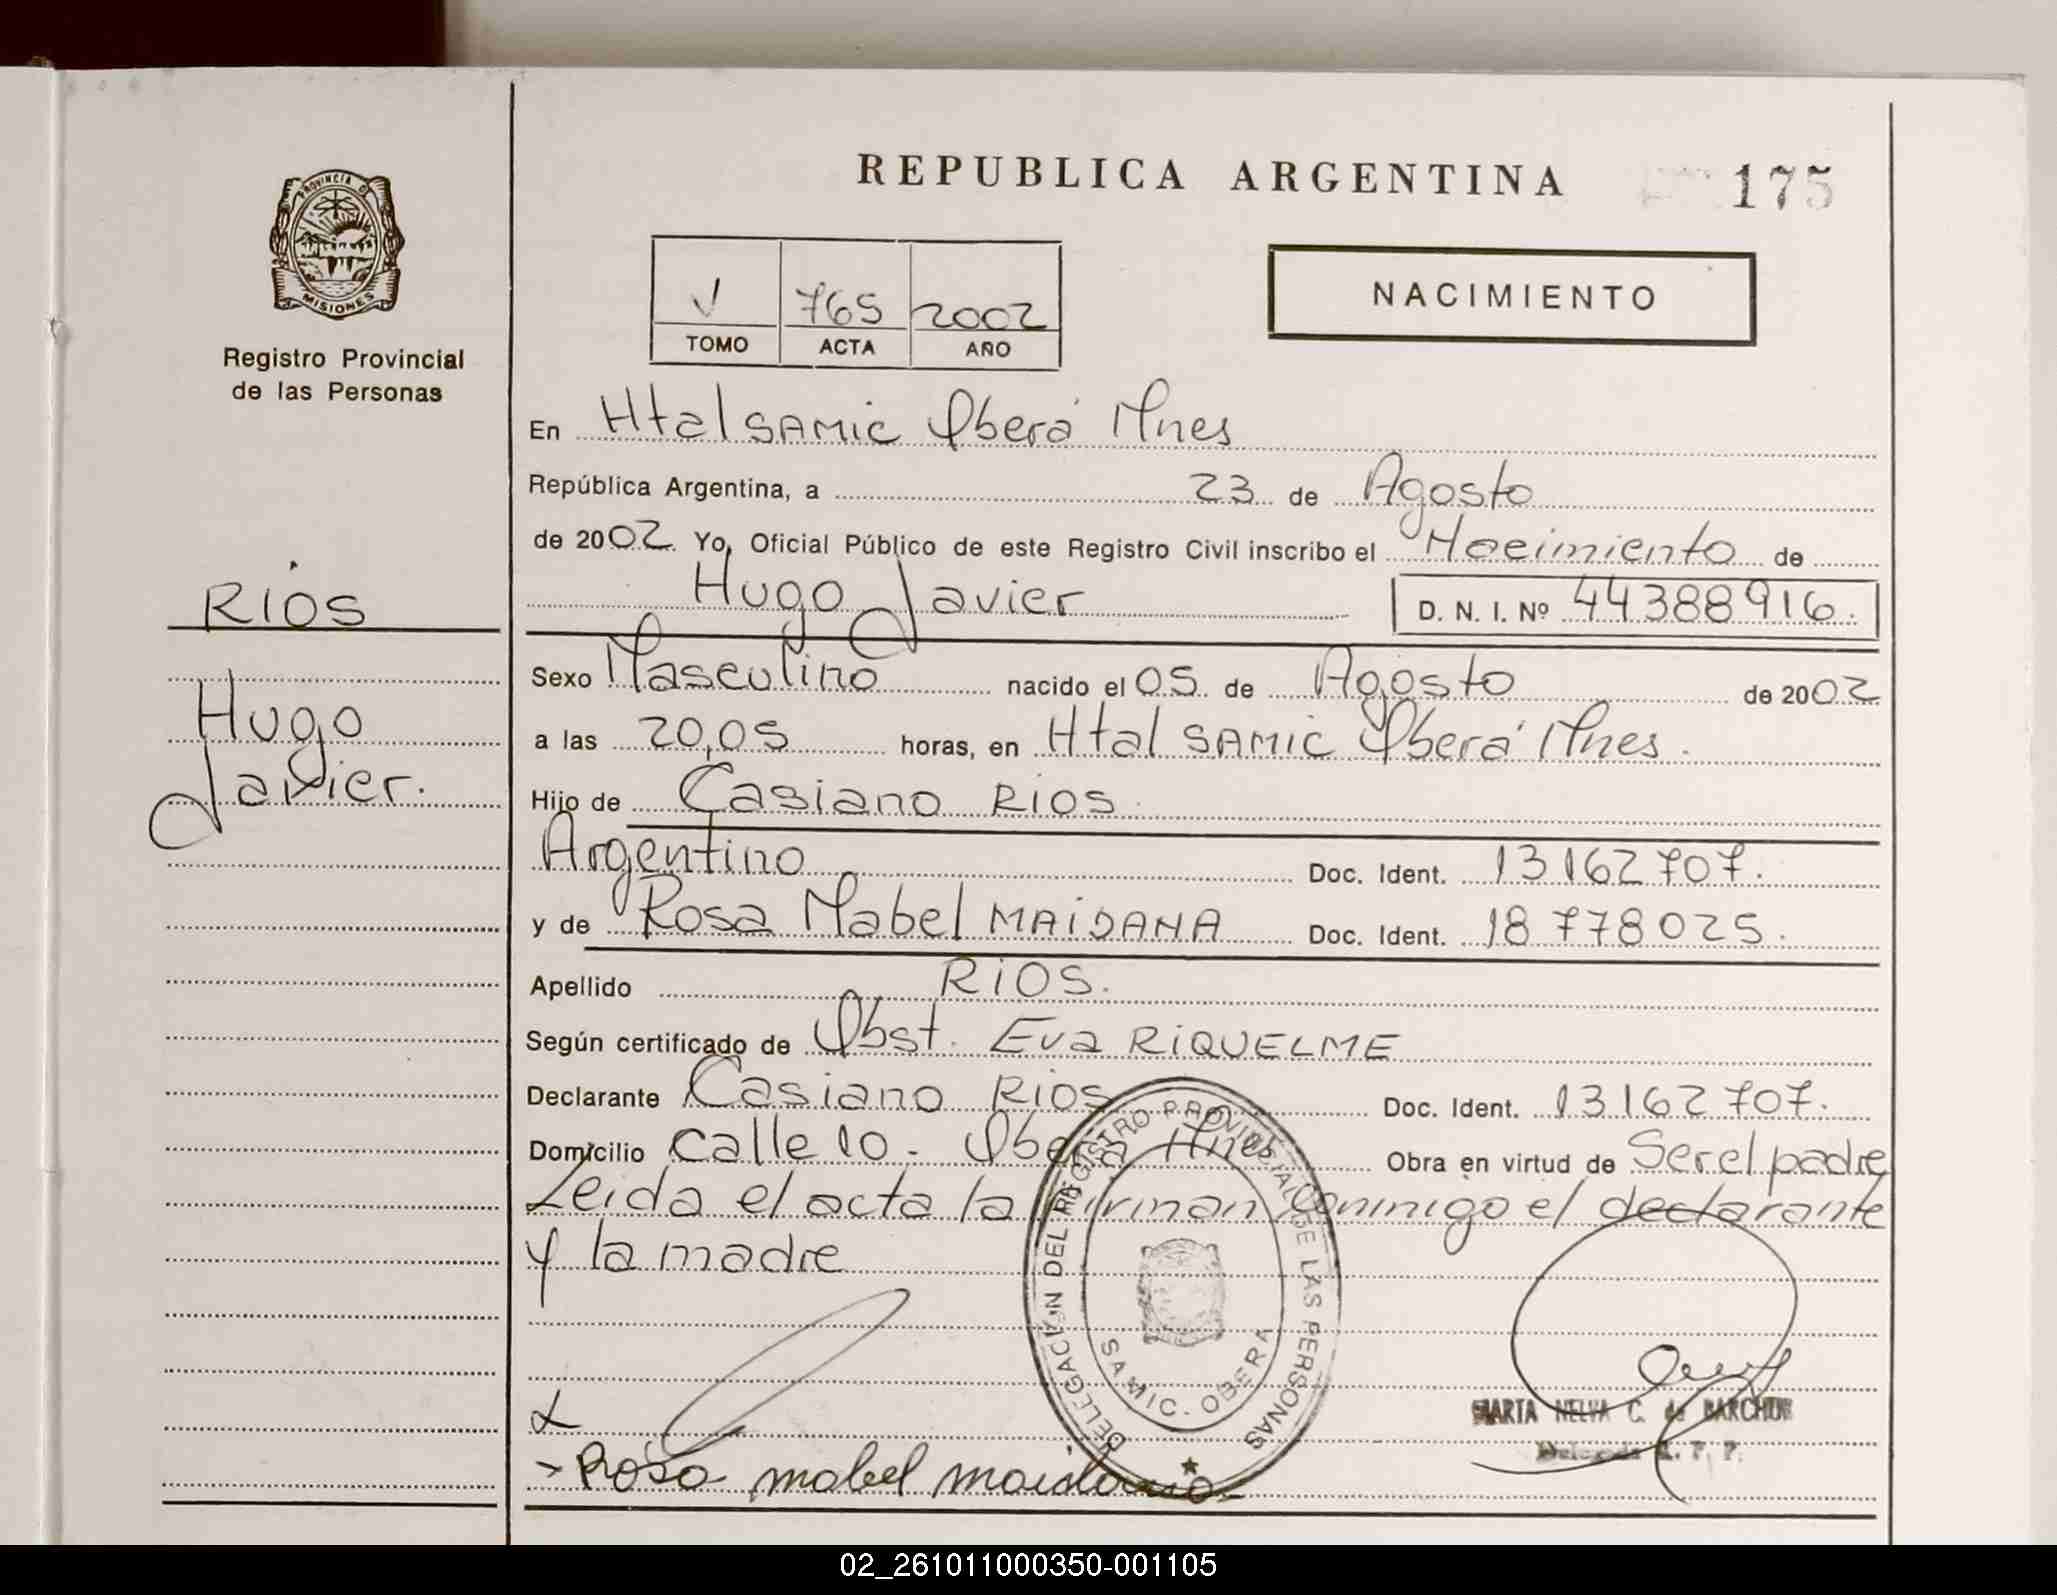 PROVINCIA D
MISIONES
Registro Provincial
de las Personas
RIOS
Hugo
Javier.
REPUBLICA ARGENTINA
175
V 765 2002
TOMO ACTA AÑO
NACIMIENTO
En Htal SAMIC Oberá Mnes
República Argentina, a 23 de Agosto
de 2002. Yo, Oficial Público de este Registro Civil inscribo el Nacimiento de
Hugo Javier D. N. I. Nº 44388916.
Sexo Masculino nacido el 05 de Agosto de 2002
a las 20,05 horas, en Htal SAMIC Oberá Mnes.
Hijo de Casiano RIOS.
Argentino Doc. Ident. 13162707.
y de Rosa Mabel MAIDANA Doc. Ident. 18778025.
Apellido RIOS.
Según certificado de Obst. Eva RIQUELME
Declarante Casiano RIOS Doc. Ident. 13162707.
Domicilio Calle 10 - Oberá Mnes Obra en virtud de Ser el padre
Leida el acta la firman conmigo el declarante
y la madre
DELEGACION DEL REGISTRO PROVINCIAL DE LAS PERSONAS
SAMIC. OBERA
MARTA NELVA C. de
Delegada R. P. P.
Rosa mabel maidana
02_261011000350-001105